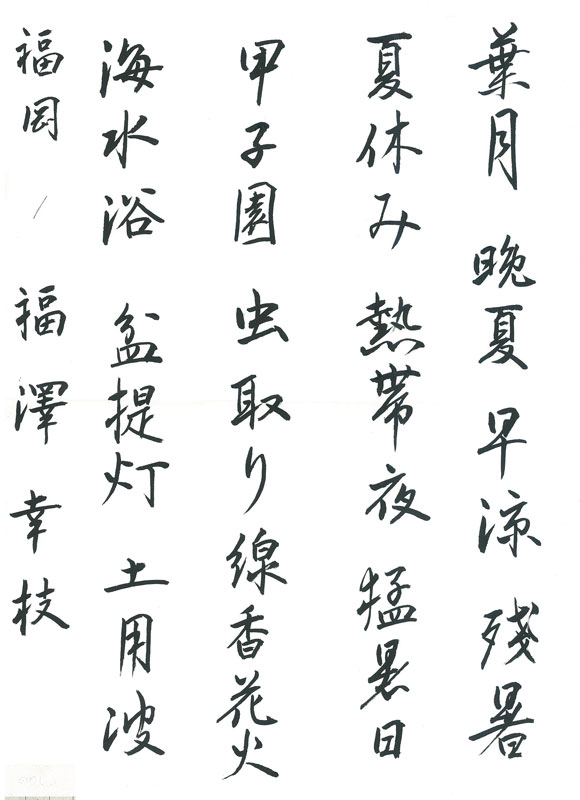 葉月 晩夏 早涼 残暑
夏休み 熱帯夜 猛暑日
甲子園 虫取り 線香花火
海水浴 盆提灯 土用波
福岡 / 福澤 幸枝